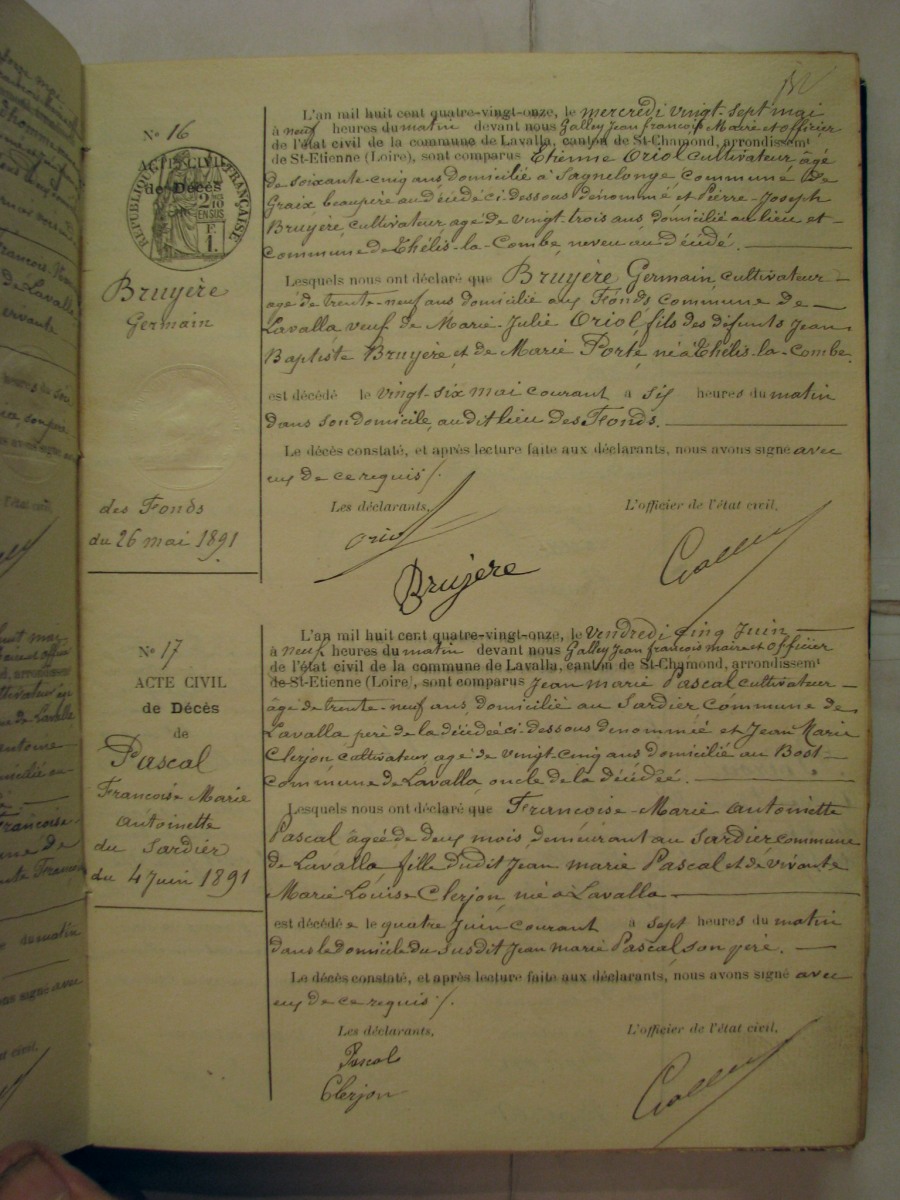 Nº 16
ACTE CIVIL
de Décès
RÉPUBLIQUE FRANÇAISE
2/10 EN SUS
F.
1.
Bruyère
Germain
des Fonds
du 26 mai 1891
L'an mil huit cent quatre-vingt-onze, le mercredi vingt-sept mai
à neuf heures du matin devant nous Galley Jean françois Marie et officier
de l'état civil de la commune de Lavalla, canton de St-Chamond, arrondissemt
de St-Etienne (Loire), sont comparus Etienne Oriol cultivateur âgé
de soixante-cinq ans domicilié à Sagnelonge commune de
Graix, beaupère au décédé ci-dessous dénommé et Pierre-Joseph
Bruyère, cultivateur agé de vingt-trois ans domicilié au lieu et
commune de Thélis-la-Combe, neveu au décédé.
Lesquels nous ont déclaré que Bruyère Germain, cultivateur
agé de trente-neuf ans domicilié aux Fonds commune de
Lavalla veuf de Marie-Julie Oriol, fils des défunts Jean
Baptiste Bruyère et de Marie Porte, né à Thélis-la-Combe.
est décédé le vingt-six mai courant à six heures du matin
dans son domicile, audit lieu des Fonds.
Le décès constaté, et après lecture faite aux déclarants, nous avons signé avec
eux de ce requis.
Les déclarants, L'officier de l'état civil,
oriol Galley
Brujère
Nº 17
ACTE CIVIL
de Décès
de
Pascal
Francoise Marie
Antoinette
du Sardier
du 4 juin 1891
L'an mil huit cent quatre-vingt-onze, le Vendredi cinq Juin
à neuf heures du matin devant nous Galley Jean françois maire et officier
de l'état civil de la commune de Lavalla, canton de St-Chamond, arrondissemt
de St-Etienne (Loire), sont comparus Jean marie Pascal cultivateur
agé de trente-neuf ans domicilié au Sardier commune de
Lavalla père de la décédée ci-dessous dénommée et Jean Marie
Clerjon cultivateur, agé de vingt-cinq ans domicilié au Bost
commune de Lavalla, oncle de la décédée.
Lesquels nous ont déclaré que Francoise-Marie antoinette
Pascal âgée de deux mois demeurant au Sardier commune
de Lavalla, fille dudit Jean marie Pascal et de vivante
Marie Louise Clerjon, née à Lavalla
est décédée le quatre Juin courant à sept heures du matin
dans le domicile du susdit Jean marie Pascal, son père.
Le décès constaté, et après lecture faite aux déclarants, nous avons signé avec
eux de ce requis.
Les déclarants, L'officier de l'état civil,
Pascal
Clerjon Galley